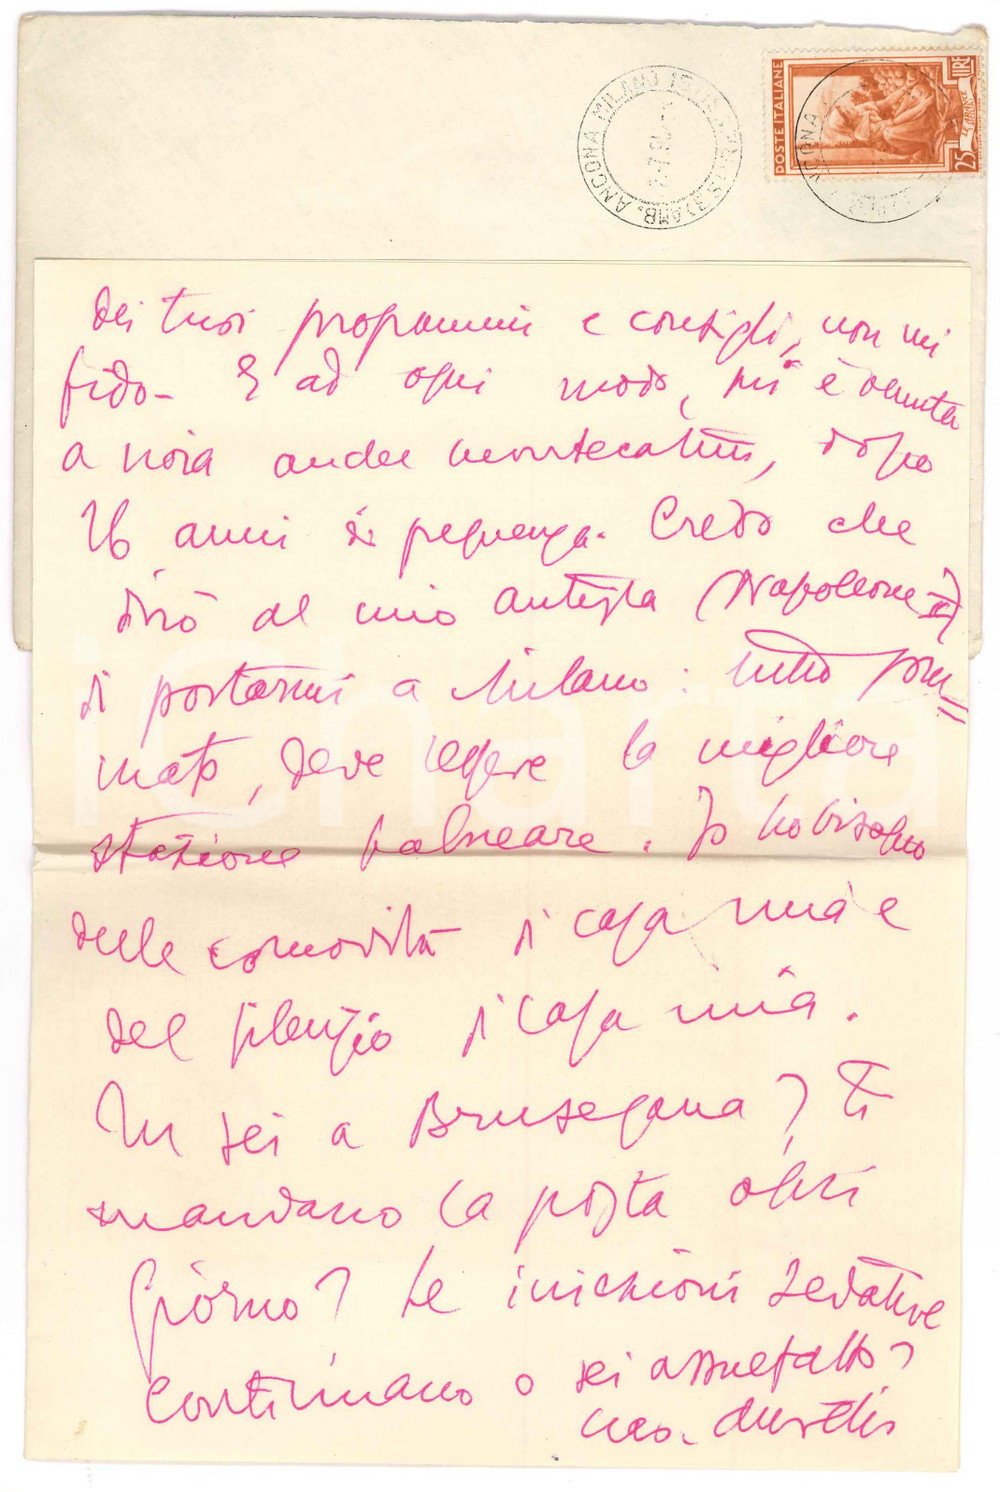 POSTE ITALIANE
LIRE
25
AMB. ANCONA MILANO
ANCONA
dei tuoi programmi e consigli, non mi
fido – E ad ogni modo, mi è venuta
a noia anche Montecatini, dopo
16 anni di frequenza. Credo che
dirò al mio autista (Napoleone II)
di portarmi a Milano: tutto som=
mato, deve essere la migliore
stazione balneare. Io ho bisogno
delle comodità di casa mia e
del silenzio di casa mia.
Tu sei a Brusegana? Ti
mandano la posta ogni
giorno? Le iniezioni sedative
continuano o sei assuefatto?
iCharta